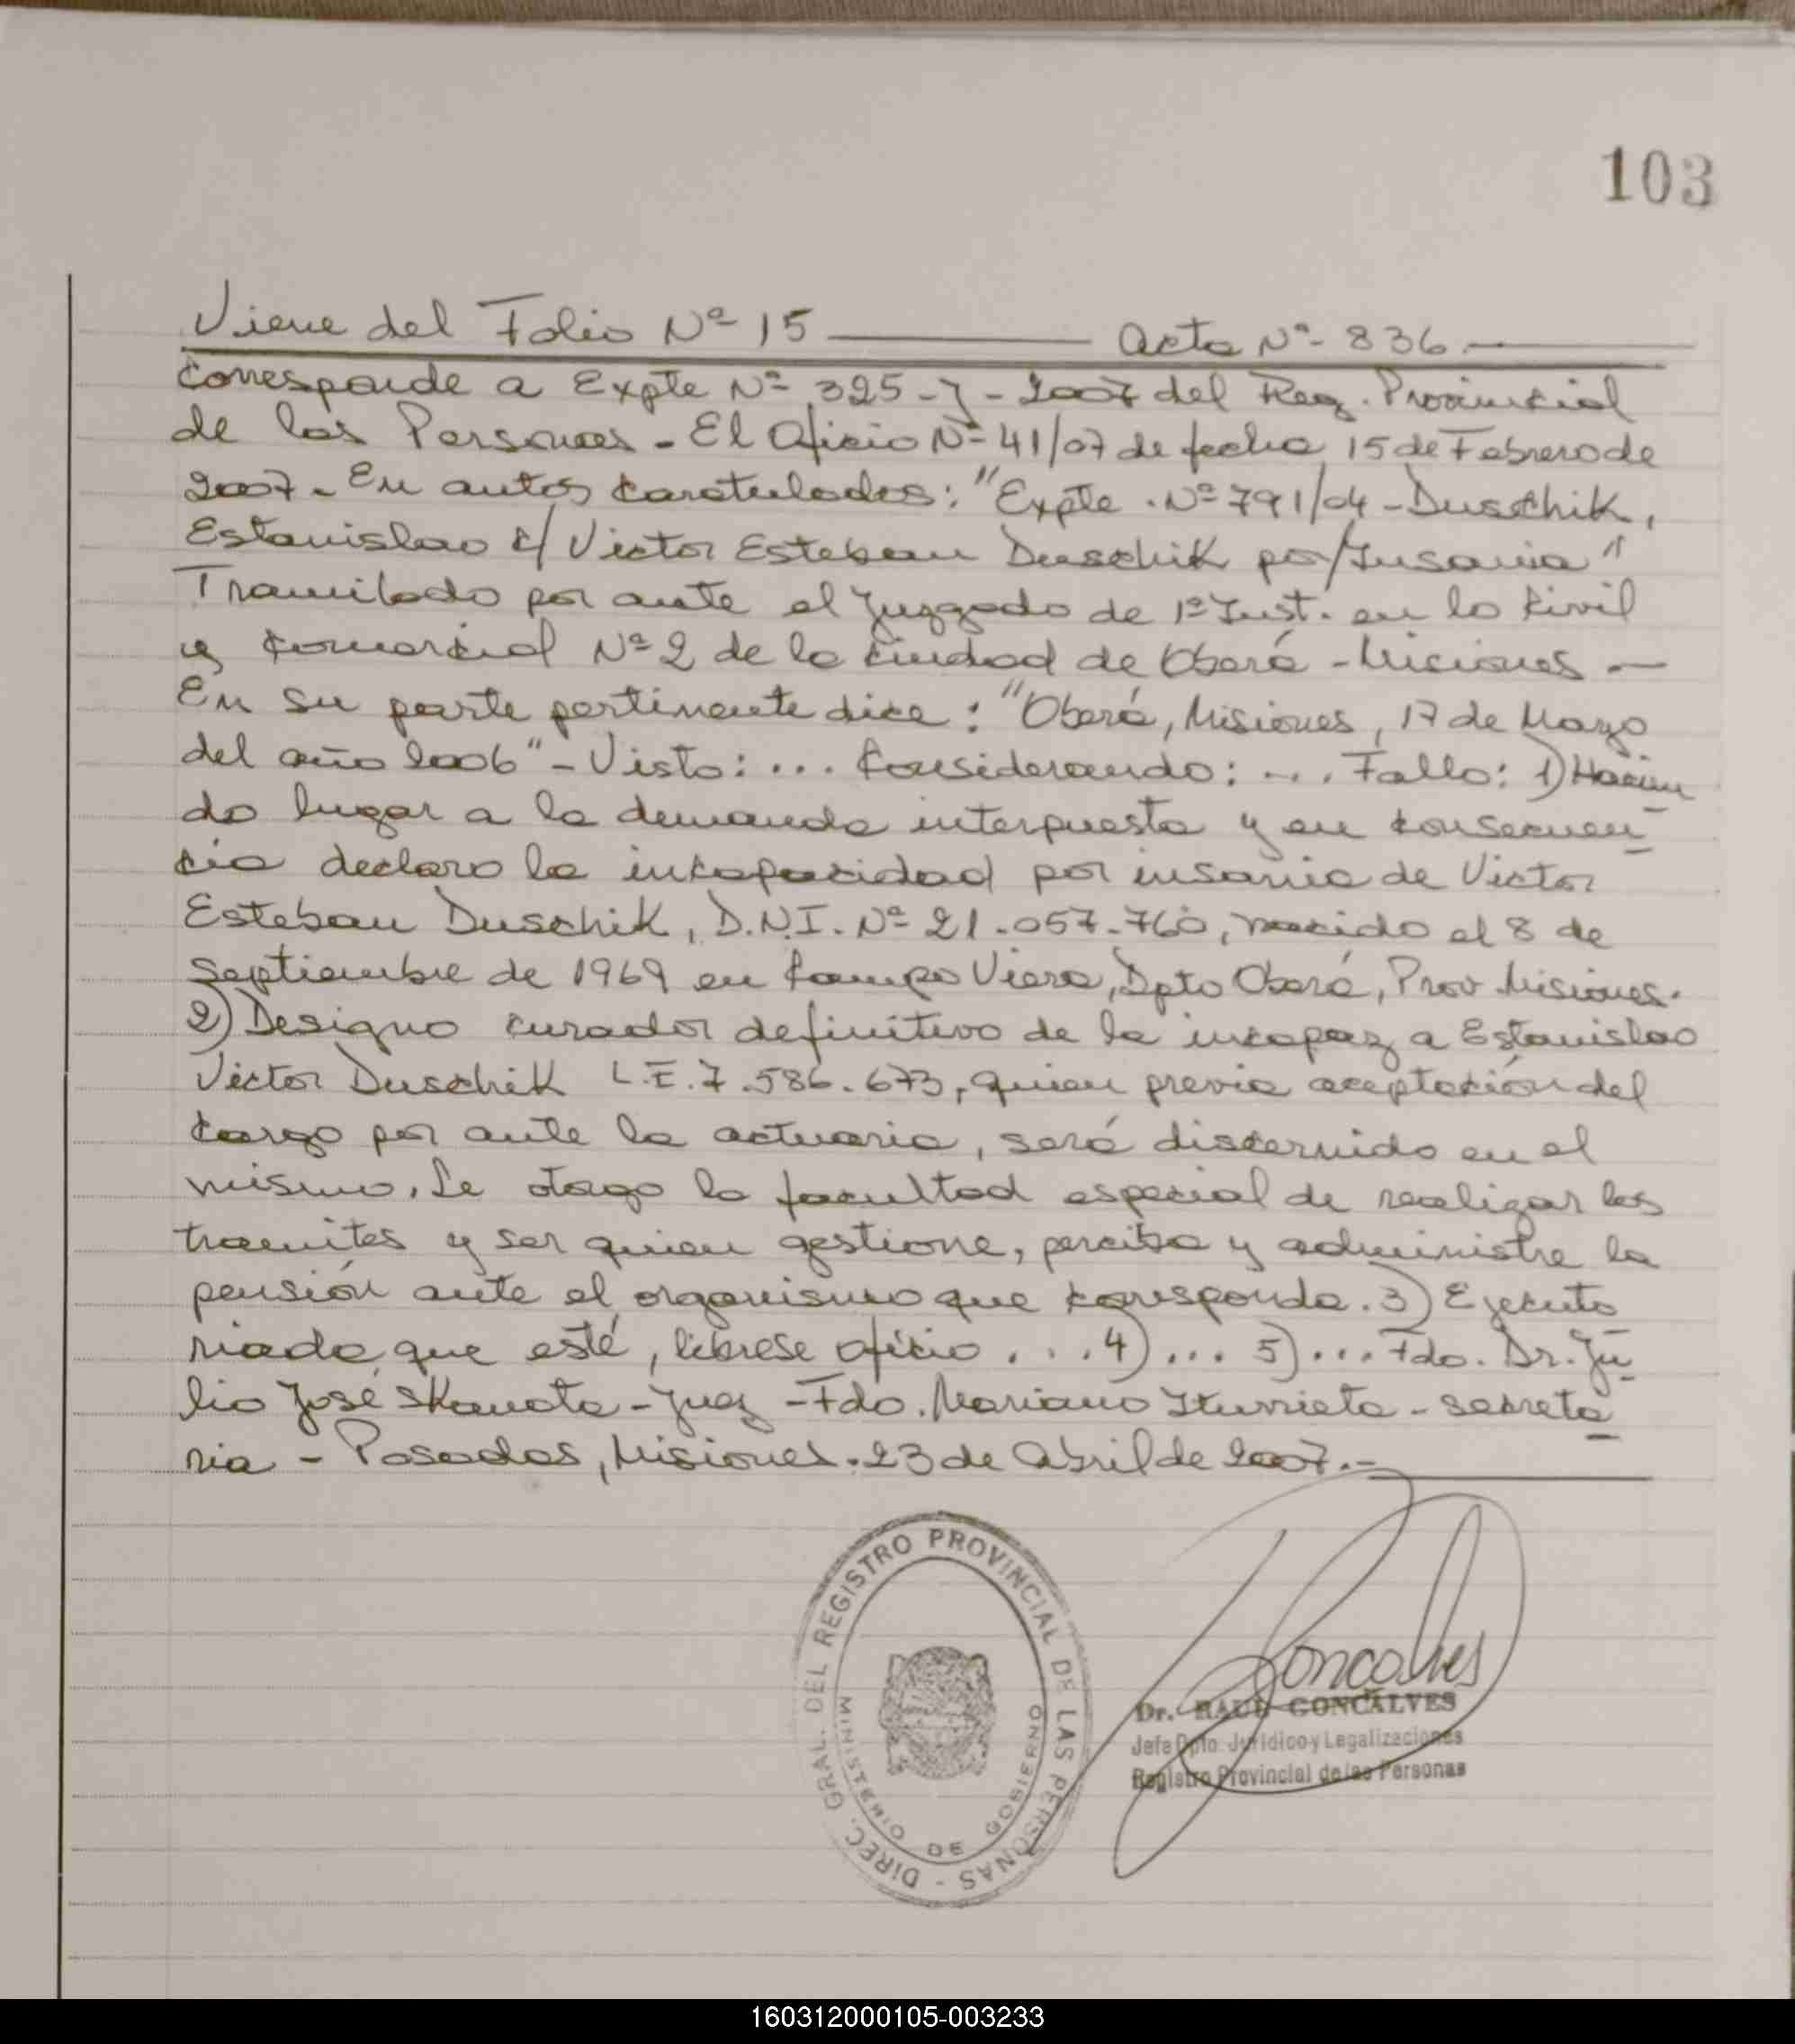 103
Viene del Folio Nº 15 ——— Acta Nº 836.—
Corresponde a Expte Nº 325-J-2007 del Reg. Provincial
de las Personas - El Oficio Nº 41/07 de fecha 15 de Febrero de
2007 - En autos caratulados: "Expte. Nº 791/04 - Duschik,
Estanislao c/ Victor Esteban Duschik por/Insania"
Tramitado por ante el Juzgado de 1º Inst. en lo Civil
y Comercial Nº 2 de la Ciudad de Oberá - Misiones —
En su parte pertinente dice: "Oberá, Misiones, 17 de Marzo
del año 2006" - Visto: ... Considerando: ... Fallo: 1) Hacien
do lugar a la demanda interpuesta y en consecuen-
cia declaro la incapacidad por insania de Victor
Esteban Duschik, D.N.I. Nº 21.057.760, nacido el 8 de
Septiembre de 1969 en Campo Viera, Dpto Oberá, Prov Misiones.
2) Designo curador definitivo de la incapaz a Estanislao
Victor Duschik L.E. 7.586.673, quien previa aceptación del
cargo por ante la actuaria, será discernido en el
mismo. Le otorgo la facultad especial de realizar los
tramites y ser quien gestione, perciba y administre la
pensión ante el organismo que corresponda. 3) Ejecuto
riada que esté, líbrese oficio ... 4) ... 5) ... Fdo. Dr. Ju-
lio José Skanata - Juez - Fdo. Mariano Iturrieta - secreta-
ria - Posadas, Misiones. 23 de Abril de 2007.-
DIREC. GRAL. DEL REGISTRO PROVINCIAL DE LAS PERSONAS -
MINISTERIO DE GOBIERNO
Goncalves
Dr. RAUL GONCALVES
Jefe Dpto. Jurídico y Legalizaciones
Registro Provincial de las Personas
160312000105-003233